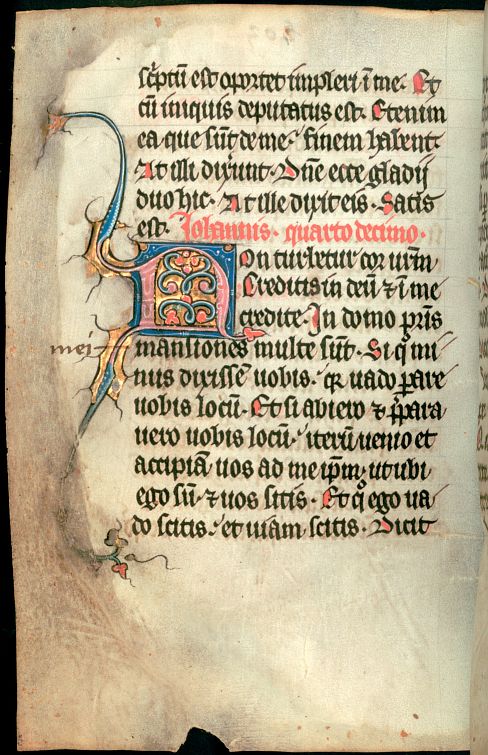 sc̄ptū est oportet impleri ī me. Et
cū iniquis deputatus est. Etenim
ea que sūt de me. finem habent.
At illi dix̄unt. Dn̄e ecce gladij
duo hic. At ille dixit eis. Satis
est. Johannis. quarto decimo.
Non turbetur cor ur̄m
Creditis in deū ⁊ ī me
credite. In domo pr̄is
mei
mansiones multe sūt. Si qͦ mi
nus dixissē uobis. qꝛ uado ꝑare
uobis locū. Et si abiero ⁊ p̄para
uero uobis locū. iterū uenio et
accipiā uos ad me ip̄m. ut ubi
ego sū. ⁊ uos sitis. Et qͦ ego ua
do scitis. et uiam scitis. Dicit